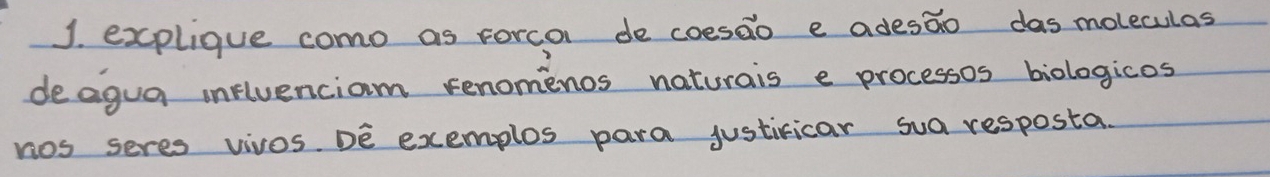 1. explique como as força de coesão e adesão das moleculas
de água influenciam fenomênos naturais e processos biologicos
nos seres vivos. Dê exemplos para justificar sua resposta.